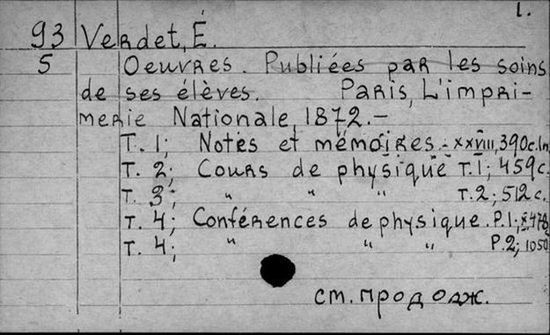 1.
93 Verdet, É.
5 Oeuvres. Publiées par les soins
de ses élèves. Paris, L'impri-
merie Nationale, 1872.–
T. 1; Notes et mémoires.- XXVIII, 390c.
T. 2; Cours de physique T.1; 459c.
T. 3; " " " T.2; 512c.
T. 4; Conférences de physique. P.1;
T. 4; " " " P.2; 1050
см. продолж.